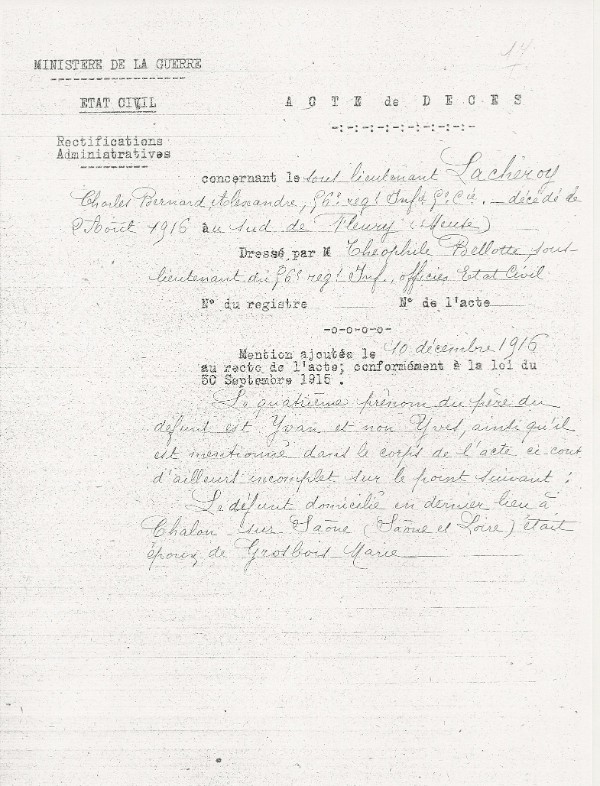 14
MINISTERE DE LA GUERRE
ETAT CIVIL
ACTE de DECES
Rectifications
Administratives
concernant le sous lieutenant Lacheroy
Charles Bernard Alexandre, 56e regt Infie 5e Cie. - décédé le
2 Août 1916 au sud de Fleury (Meuse)
Dressé par M Théophile Bellotte, sous-
lieutenant du 56e regt Inf., officier Etat Civil
N° du registre N° de l'acte
-o-o-o-o-
Mention ajoutés le 10 décembre 1916
au recto de l'acte; conformément à la loi du
30 Septembre 1915.
Le quatrième prénom du père du
défunt est Yvan et non Yves, ainsi qu'il
est mentionné dans le corps de l'acte ci-cont
d'ailleurs incomplet sur le point suivant :
Le défunt domicilié en dernier lieu à
Chalon sur Saône (Saône et Loire) était
époux de Grosbois Marie